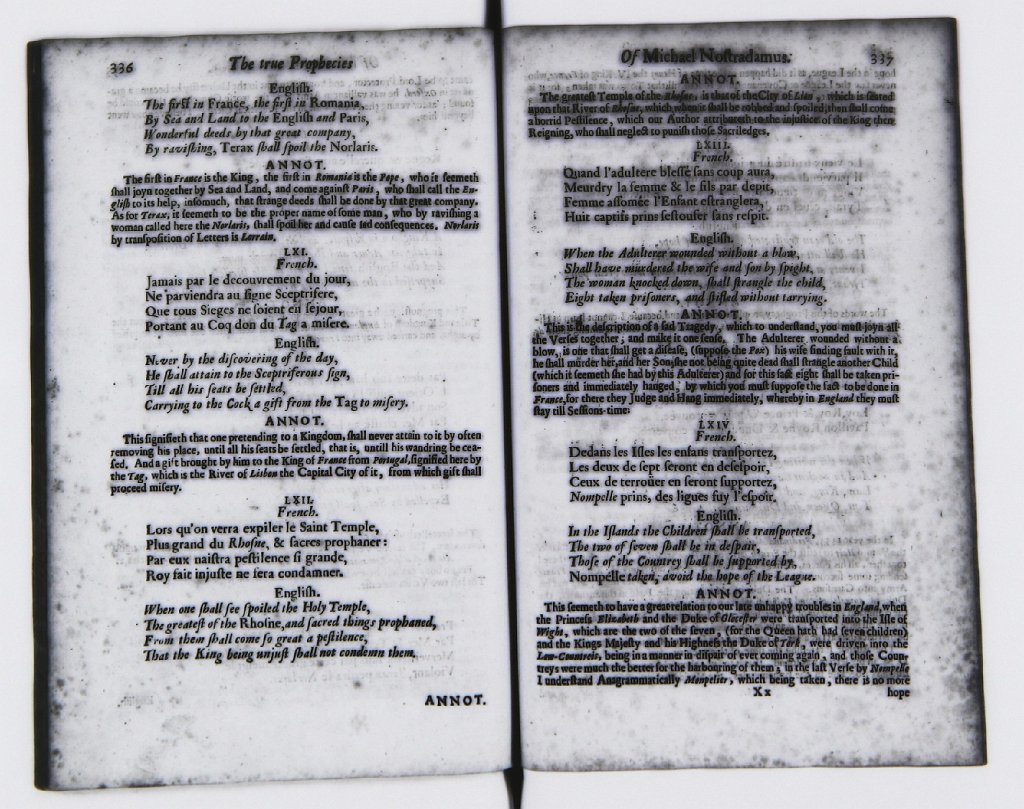 336 The true Prophecies
English.
The first in France, the first in Romania,
By Sea and Land to the English and Paris,
Wonderful deeds by that great company,
By ravishing, Terax shall spoil the Norlaris.
ANNOT.
The first in France is the King, the first in Romania is the Pope, who it seemeth
shall joyn together by Sea and Land, and come against Paris, who shall call the En-
glish to its help, insomuch, that strange deeds shall be done by that great company.
As for Terax, it seemeth to be the proper name of some man, who by ravishing a
woman called here the Norlaris, shall spoil her and cause sad consequences. Norlaris
by transposition of Letters is Lorrain.
LXI.
French.
Jamais par le decouvrement du jour,
Ne parviendra au signe Sceptrifere,
Que tous Sieges ne soient en sejour,
Portant au Coq don du Tag a misere.
English.
Never by the discovering of the day,
He shall attain to the Sceptriferous sign,
Till all his seats be settled,
Carrying to the Cock a gift from the Tag to misery.
ANNOT.
This signifieth that one pretending to a Kingdom, shall never attain to it by often
removing his place, until all his seats be settled, that is, untill his wandring be cea-
sed. And a gift brought by him to the King of France from Portugal, signified here by
the Tag, which is the River of Lisbon the Capital City of it, from which gift shall
proceed misery.
LXII.
French.
Lors qu'on verra expiler le Saint Temple,
Plus grand du Rhosne, & sacres prophaner:
Par eux naistra pestilence si grande,
Roy fait injuste ne sera condamner.
English.
When one shall see spoiled the Holy Temple,
The greatest of the Rhosne, and sacred things prophaned,
From them shall come so great a pestilence,
That the King being unjust shall not condemn them.
ANNOT.
Of Michael Nostradamus. 337
ANNOT.
The greatest Temple of the Rhosne, is that of the City of Lion, which is seated
upon that River of Rhosne, which when it shall be robbed and spoiled, then shall come
a horrid Pestilence, which our Author attributeth to the injustice of the King then
Reigning, who shall neglect to punish those Sacriledges.
LXIII.
French.
Quand l'adultere blessé sans coup aura,
Meurdry la femme & le fils par depit,
Femme assomée l'Enfant estranglera,
Huit captifs prins sestoufer sans respit.
English.
When the Adulterer wounded without a blow,
Shall have murdered the wife and son by spight,
The woman knocked down, shall strangle the child,
Eight taken prisoners, and stifled without tarrying.
ANNOT.
This is the description of a sad Tragedy, which to understand, you must joyn all
the Verses together, and make it one sense. The Adulterer wounded without a
blow, is one that shall get a disease, (suppose the Pox) his wife finding fault with it,
he shall murder her, and her Son, she not being quite dead shall strangle another Child
(which it seemeth she had by this Adulterer) and for this fact eight shall be taken pri-
soners and immediately hanged, by which you must suppose the fact to be done in
France, for there they Judge and Hang immediately, whereby in England they must
stay till Sessions-time.
LXIV.
French.
Dedans les Isles les enfans transportez,
Les deux de sept seront en desespoir,
Ceux de terroüer en seront supportez,
Nompelle prins, des ligues fuy l'espoir.
English.
In the Islands the Children shall be transported,
The two of seven shall be in despair,
Those of the Countrey shall be supported by,
Nompelle taken, avoid the hope of the League.
ANNOT.
This seemeth to have a great relation to our late unhappy troubles in England, when
the Princess Elizabeth and the Duke of Glocester were transported into the Isle of
Wight, which are the two of the seven, (for the Queen hath had seven children)
and the Kings Majesty and his Highness the Duke of York, were driven into the
Low-Countreis, being in a manner in dispair of ever coming again, and those Coun-
treys were much the better for the harbouring of them; in the last Verse by Nompelle
I understand Anagrammatically Monpelier, which being taken, there is no more
Xx hope